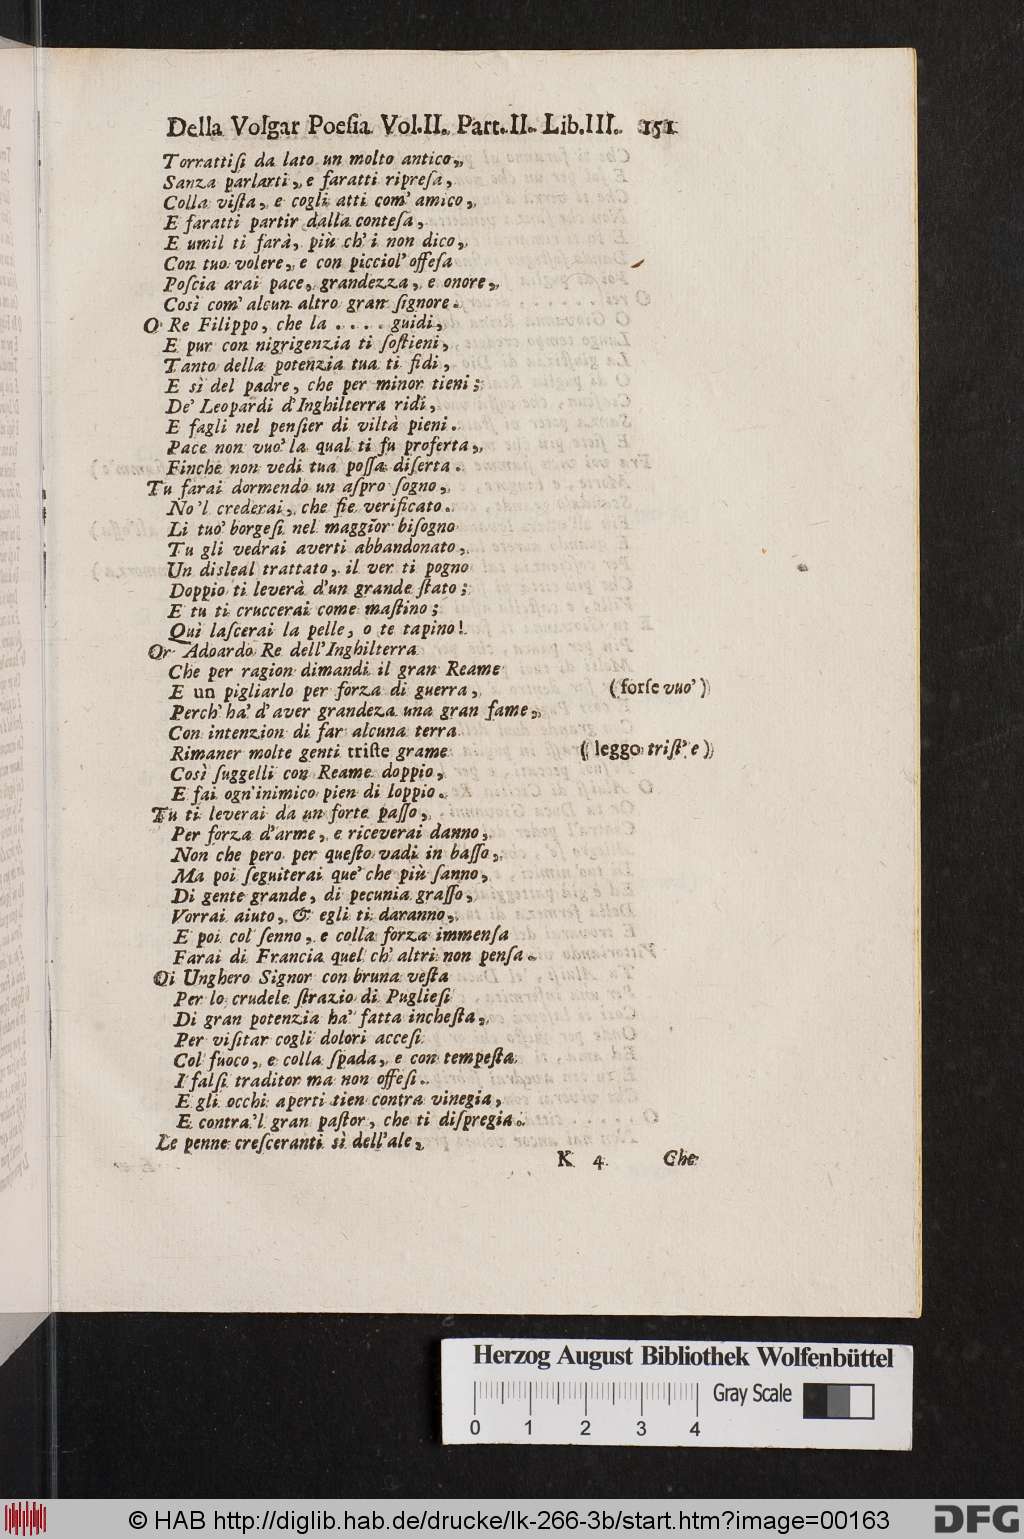 Della Volgar Poeſia Vol.II. Part.II. Lib.III. 151
Torrattiſi da lato un molto antico,
Sanza parlarti, e faratti ripreſa,
Colla viſta, e cogli atti com' amico,
E faratti partir dalla conteſa,
E umil ti farà, più ch' i non dico,
Con tuo volere, e con picciol' offeſa
Poſcia arai pace, grandezza, e onore,
Così com' alcun altro gran ſignore.
O Re Filippo, che la . . . . guidi,
E pur con nigrigenzia ti ſoſtieni,
Tanto della potenzia tua ti fidi,
E sì del padre, che per minor tieni;
De' Leopardi d'Inghilterra ridi,
E fagli nel penſier di viltà pieni.
Pace non vuo' la qual ti fu proferta,
Finchè non vedi tua poſſa diſerta.
Tu farai dormendo un aſpro ſogno,
No'l crederai, che fie verificato.
Li tuo' borgeſi nel maggior biſogno
Tu gli vedrai averti abbandonato,
Un disleal trattato, il ver ti pogno
Doppio ti leverà d'un grande ſtato;
E tu ti cruccerai come maſtino;
Quì laſcerai la pelle, o te tapino!
Or Adoardo Re dell'Inghilterra
Che per ragion dimandi il gran Reame
E un pigliarlo per forza di guerra, (forſe vuo')
Perch' ha' d'aver grandeza una gran fame,
Con intenzion di far alcuna terra
Rimaner molte genti triſte grame (leggo triſt' e)
Così ſuggelli con Reame doppio,
E fai ogn'inimico pien di loppio.
Tu ti leverai da un forte paſſo,
Per forza d'arme, e riceverai danno,
Non che pero per queſto vadi in baſſo,
Ma poi ſeguiterai que' che più ſanno,
Di gente grande, di pecunia graſſo,
Vorrai aiuto, & egli ti daranno,
E poi col ſenno, e colla forza immenſa
Farai di Francia quel ch' altri non penſa.
Oi Unghero Signor con bruna veſta
Per lo crudele ſtrazio di Puglieſi
Di gran potenzia ha' fatta incheſta,
Per viſitar cogli dolori acceſi
Col fuoco, e colla ſpada, e con tempeſta
I falſi traditor ma non offeſi.
E gli occhi aperti tien contra vinegia,
E contra'l gran paſtor, che ti diſpregia.
Le penne creſceranti sì dell'ale,
K 4 Che
Herzog August Bibliothek Wolfenbüttel
Gray Scale
0 1 2 3 4
© HAB http://diglib.hab.de/drucke/lk-266-3b/start.htm?image=00163
DFG